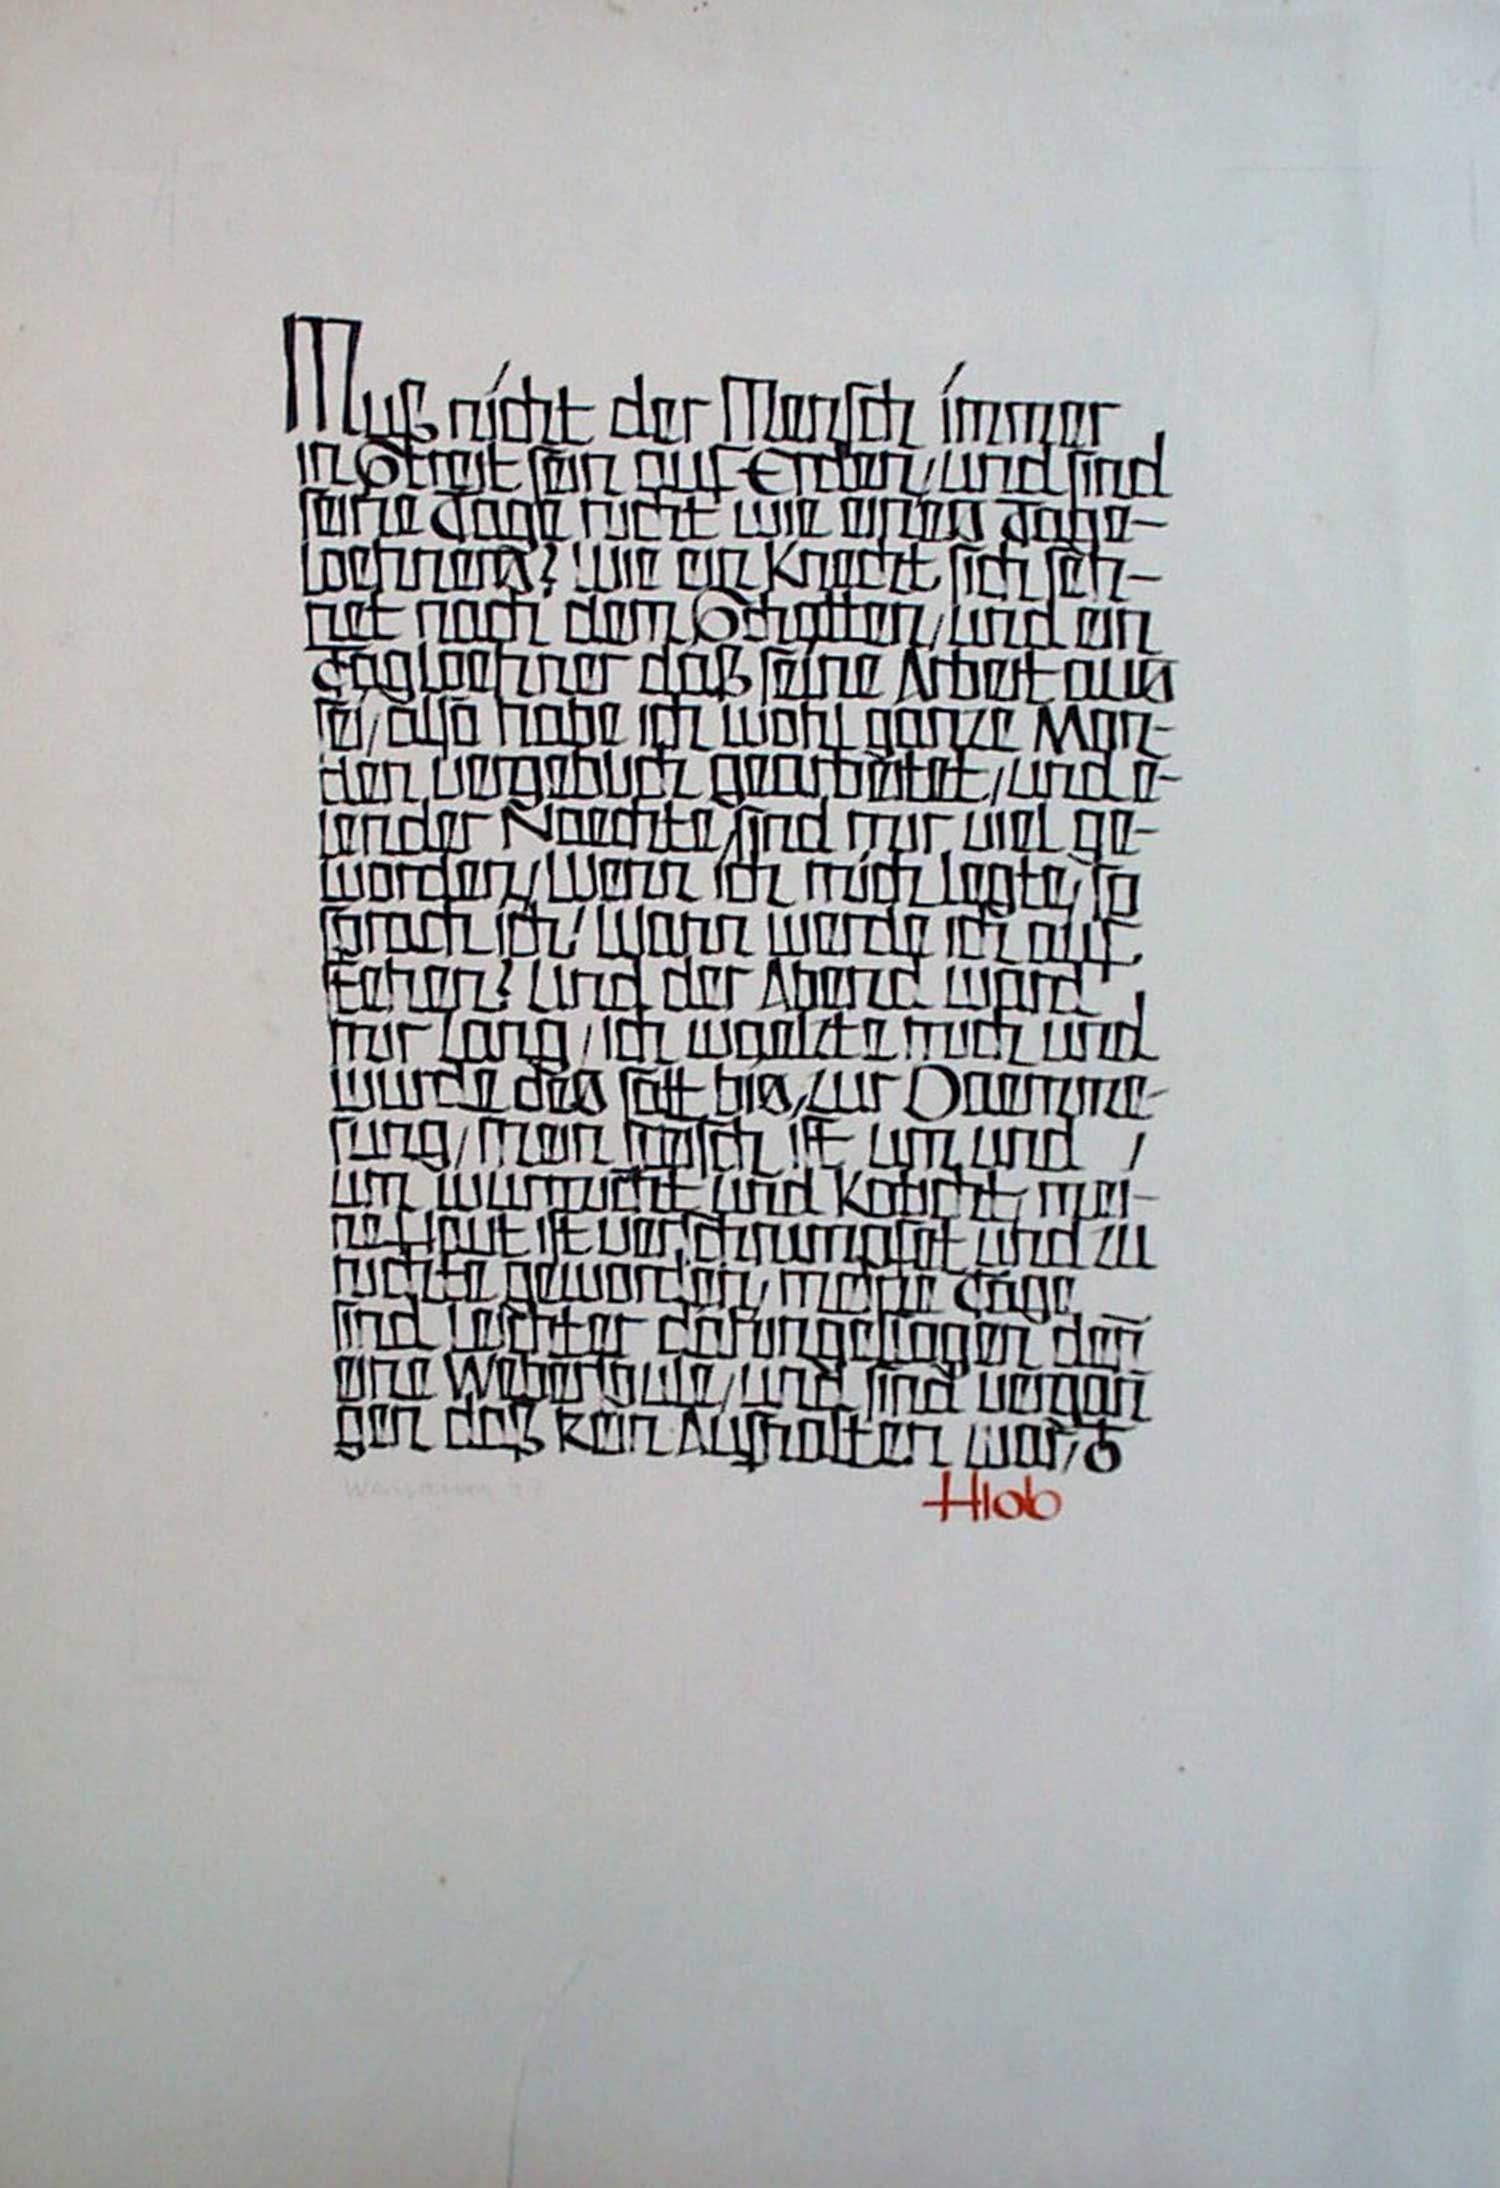 Muß nicht der Mensch immer
in Streit sein auf Erden/und sind
seine Tage nicht wie eines Tage-
loehners? Wie ein Knecht sich seh-
net nach dem Schatten/und ein
Tagloehner daß seine Arbeit aus
sei/also habe ich wohl ganze Mon-
den vergeblich gearbeitet/und e-
lender Naechte sind mir viel ge-
worden/Wenn ich mich legte, so
sprach ich! Wann werde ich auf
stehen? Und der Abend ward
mir lang/ich waelzte mich und
wurde des satt bis zur Daemme-
rung/mein Fleisch ist um und /
um wurmicht und koticht, mei-
ne Haut ist verschrumpfet und zu
nichte geworden, meine Tage
sind leichter dahingeflogen deñ
eine Weberspule/und sind vergañ
gen daß kein Aufhalten war/
Hiob